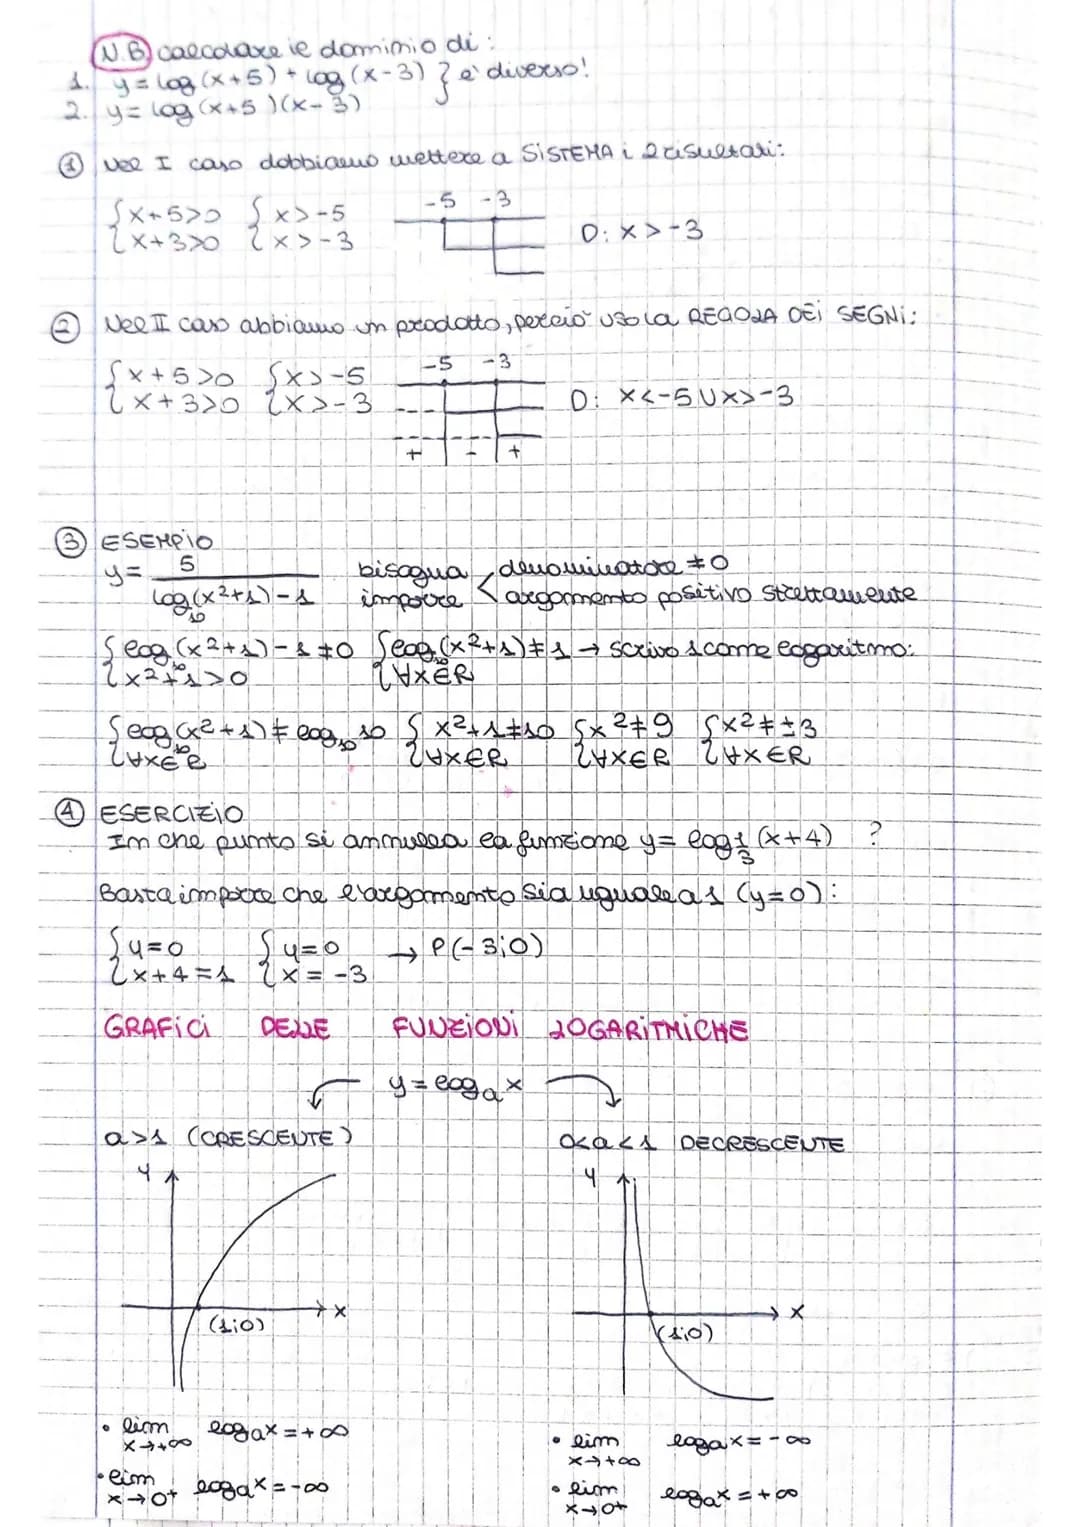 N.B. calcolare il dominio di:
1. y = log (x+5) + log (x-3) } è diverso!
2. y = log (x+5)(x-3)
① Nel I caso dobbiamo mettere a SISTEMA i 2 risultati:
{x+5>0 {x>-5 -5 -3
{x+3>0 {x>-3 D: x>-3
② Nel II caso abbiamo un prodotto, perciò uso la REGOLA DEI SEGNI:
{x+5>0 {x>-5 -5 -3
{x+3>0 {x>-3 D: x<-5 U x>-3
+ - +
③ ESEMPIO
y = 5 / log₁₀(x²+1)-1 bisogna imporre < denominatore ≠0
argomento positivo strettamente
{log₁₀(x²+1)-1≠0 {log₁₀(x²+1)≠1 → scrivo 1 come logaritmo:
{x²+1>0 {∀x∈R
{log₁₀(x²+1)≠log₁₀10 {x²+1≠10 {x²≠9 {x²≠±3
{∀x∈R {∀x∈R {∀x∈R {∀x∈R
④ ESERCIZIO
In che punto si annulla la funzione y = log 1/3 (x+4) ?
Basta imporre che l'argomento sia uguale a 1 (y=0):
{y=0 {y=0 → P(-3;0)
{x+4=1 {x=-3
GRAFICI DELLE FUNZIONI LOGARITMICHE
y = logₐx
a>1 (CRESCENTE) 0<a<1 DECRESCENTE
y y
x x
(1;0) (1;0)
• lim x→+∞ logₐx = +∞ • lim x→+∞ logₐx = -∞
• lim x→0⁺ logₐx = -∞ • lim x→0⁺ logₐx = +∞